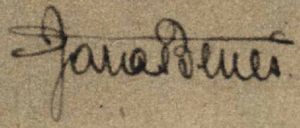 Jana Beneš